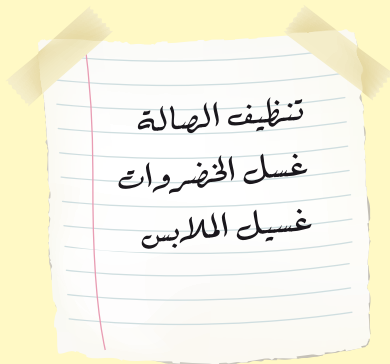 تنظيف الصالة
غسل الخضروات
غسيل الملابس